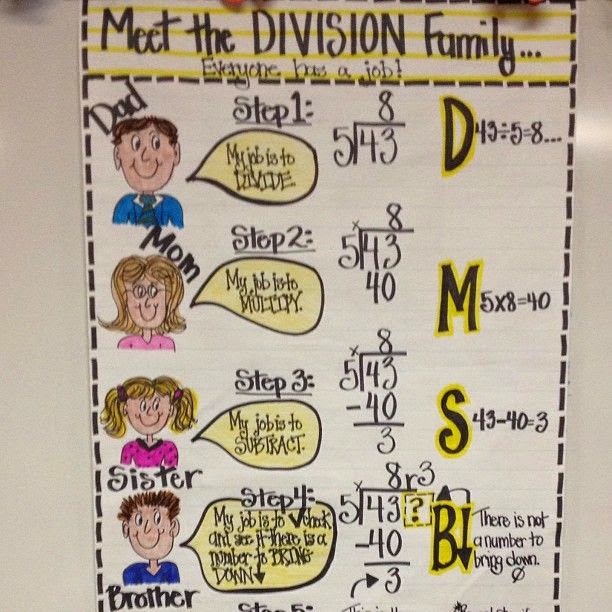 Meet the DIVISION Family...
Everyone has a job!
Dad
Step 1:
My job is to
DIVIDE.
8
5)43
D 43÷5=8...
Mom
Step 2:
My job is to
MULTIPLY.
x 8
5)43
40
M 5x8=40
Sister
Step 3:
My job is to
SUBTRACT.
x 8
5)43
-40
3
S 43-40=3
Brother
Step 4:
My job is to ✓check
and see if there is a
number to BRING
DOWN↓
x 8r3
5)43?
-40
3
B↓
There is not
a number to
bring down.
Step 5: